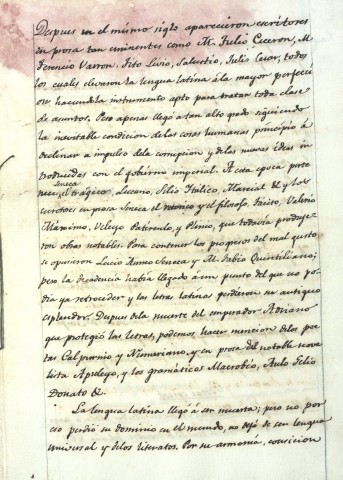 Despues en el mismo siglo aparecieron escritores
en prosa tan eminentes como M. Tulio Ciceron, M.
Terencio Varron, Tito Livio, Salustio, Julio Cesar, todos
los cuales elevaron la lengua latina á la mayor perfecci
on haciendola instrumento apto para tratar toda clase
de asuntos. Pero apenas llegó a tan alto grado siguiendo
la inevitable condicion de las cosas humanas principió á
declinar a impulso dela corrupcion y delas nuevas ideas in
troducidas con el gobierno imperial. A esta epoca perte
Seneca
necen el trágico, Lucano, Silio Itálico, Marcial & y los
escritores en prosa Seneca el retorico y el filosofo, Tácito, Valerio
Máximo, Veleyo Paterculo, y Plinio, que todavia produje
ron obras notables. Para contener los progresos del mal gusto
se opusieron Lucio Anneo Seneca y M. Fabio Quintiliano;
pero la decadencia habia llegado á un punto del que no po
dia ya retroceder y las letras latinas perdieron su antiguo
esplendor. Despues dela muerte del emperador Adriano
que protegió las letras, podemos hacer mencion delos poe
tas Calpurnio y Nemesiano, y en prosa del notable nove
lista Apuleyo, y los gramáticos Macrobio, Aulo Gelio
Donato &.
La lengua latina llegó á ser muerta; pero no por
eso perdió su dominio en el mundo, no dejó de ser lengua
universal y delos literatos. Por su armonia, concision